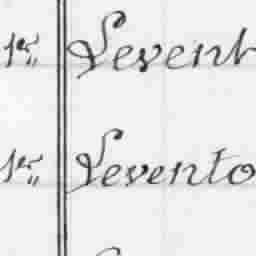 1er,, Levent
1er,, Levento